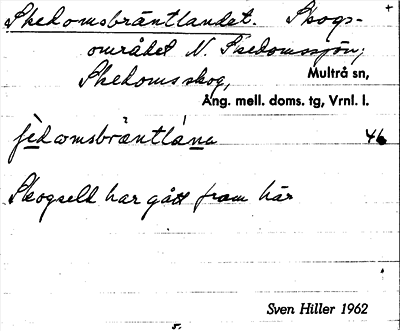 Skedomsbräntlandet. Skogs- +
området N. Skedomssjön,
Skedoms skog, Multrå sn,
Ång. mell. doms. tg, Vrnl. l.
46
Skogseld har gått fram här
Sven Hiller 1962